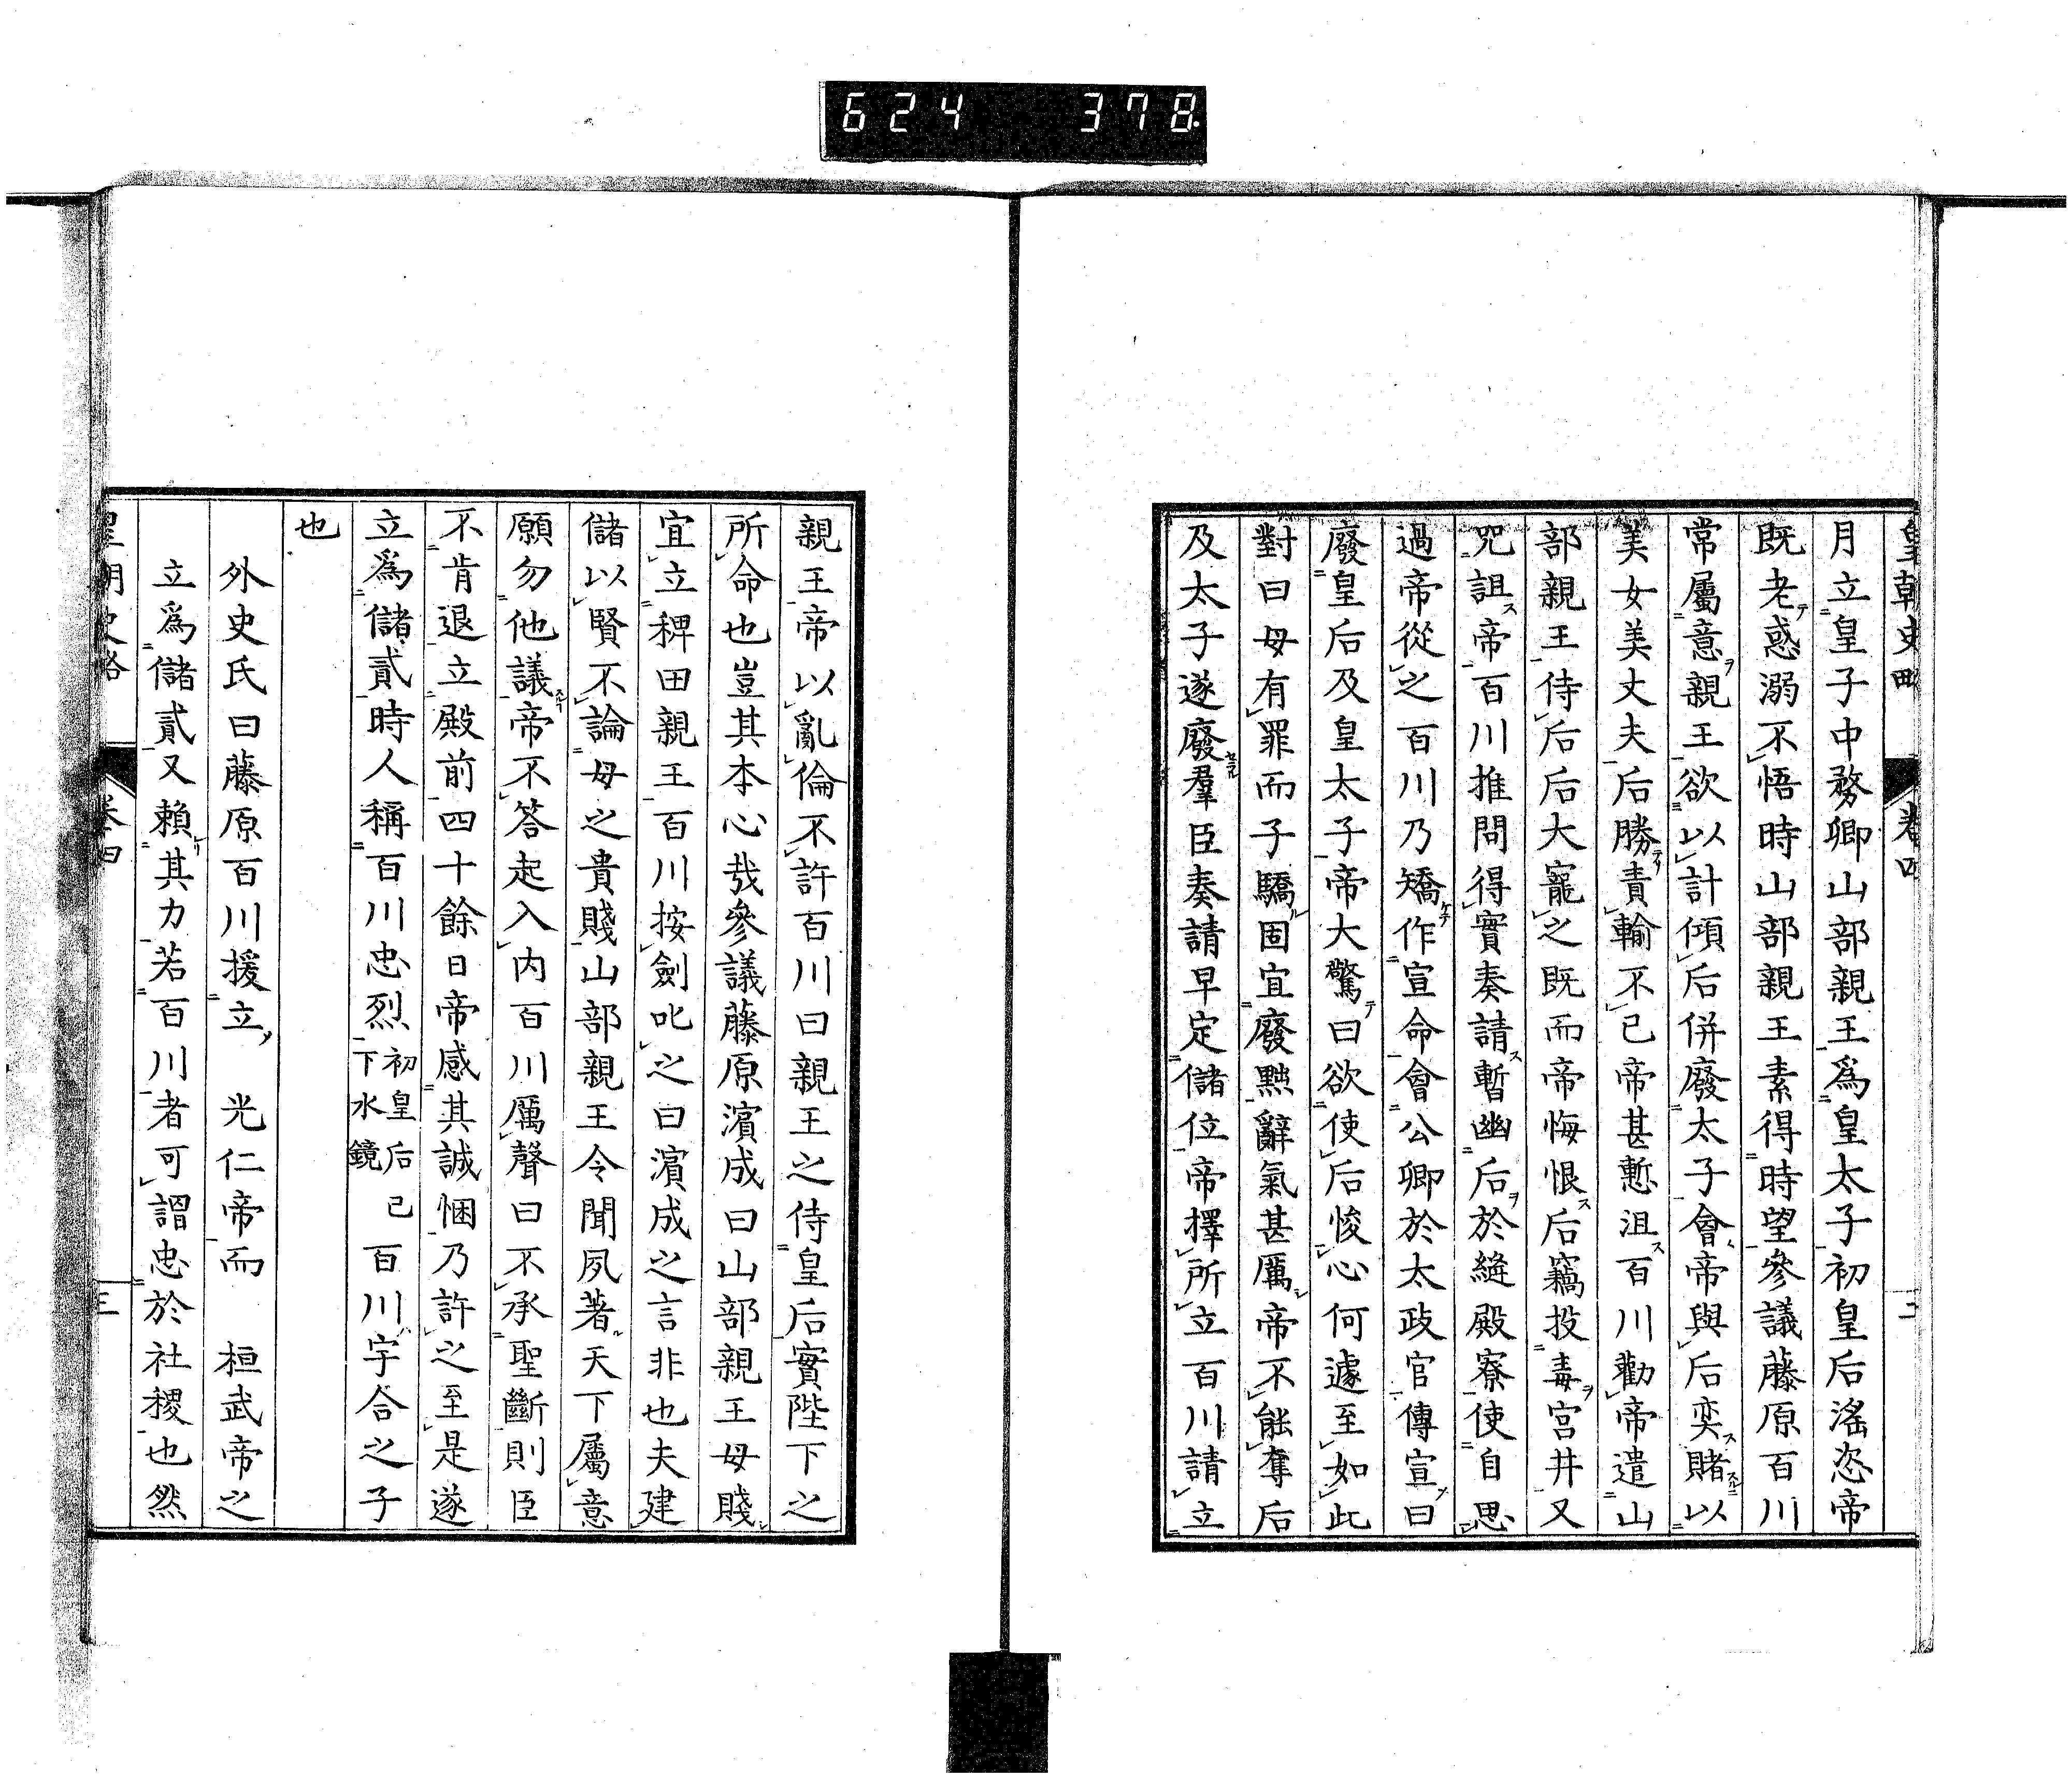 624 378
皇朝史略 卷四 二
月立皇子中務卿山部親王爲皇太子初皇后滛恣帝
既老惑溺不悟時山部親王素得時望參議藤原百川
常屬意親王欲以計傾后併廢太子會帝與后奕賭以
美女美丈夫后勝責輸不已帝甚慙沮百川勸帝遣山
部親王侍后后大寵之既而帝悔恨后竊投毒宮井又
咒詛帝百川推問得實奏請暫幽后於縫殿寮使自思
過帝從之百川乃矯作宣命會公卿於太政官傳宣曰
廢皇后及皇太子帝大驚曰欲使后悛心何遽至如此
對曰母有罪而子驕固宜廢黜辭氣甚厲帝不能奪后
及太子遂廢羣臣奏請早定儲位帝擇所立百川請立
親王帝以亂倫不許百川曰親王之侍皇后實陛下之
所命也豈其本心哉參議藤原濱成曰山部親王母賤
宜立稗田親王百川按劍叱之曰濱成之言非也夫建
儲以賢不論母之貴賤山部親王令聞夙著天下屬意
願勿他議帝不答起入内百川厲聲曰不承聖斷則臣
不肯退立殿前四十餘日帝感其誠悃乃許之至是遂
立爲儲貳時人稱百川忠烈初皇后已下水鏡百川宇合之子
也
外史氏曰藤原百川援立 光仁帝而 桓武帝之
立爲儲貳又賴其力若百川者可謂忠於社稷也然
皇朝史略 卷四 三